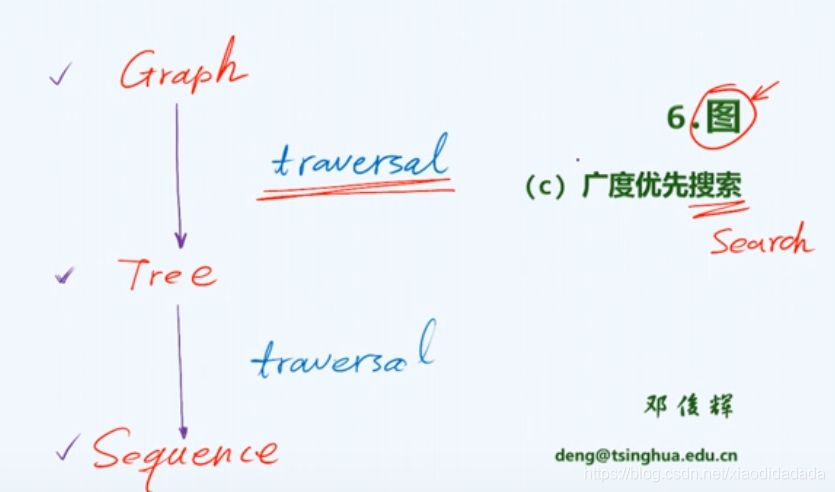 Graph
traversal
Tree
traversal
Sequence
6.图
(c) 广度优先搜索
Search
邓俊辉
deng@tsinghua.edu.cn
https://blog.csdn.net/xiaodidadada